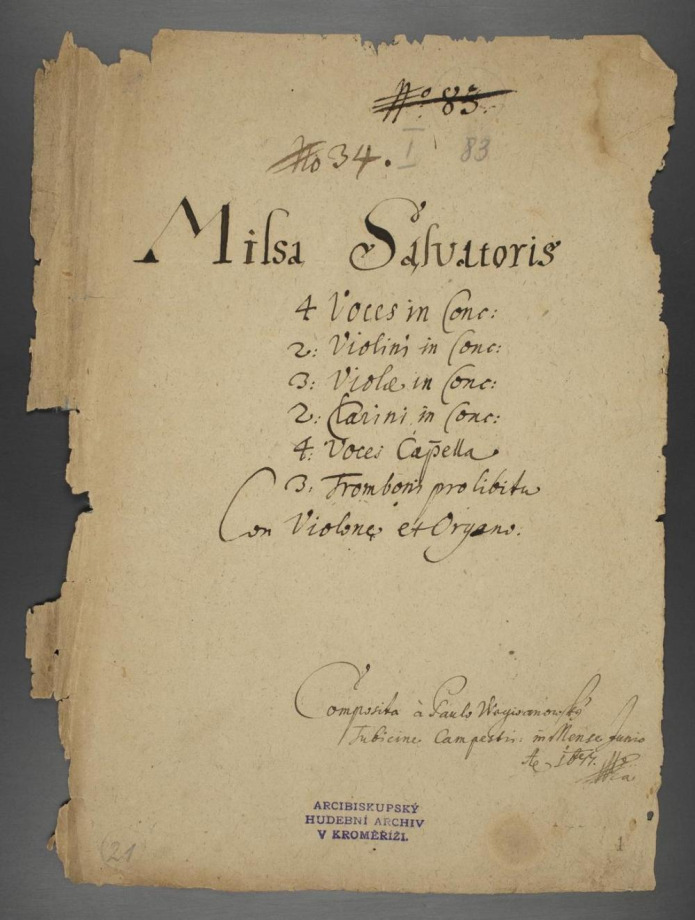 No: 83.
No 34. I 83
Missa Salvatoris
4 Voces in Conc:
2: Violini in Conc:
3: Violæ in Conc:
2: Clarini in Conc:
4: Voces Capella
3: Tromboni pro libitu
Con Violone et Organo.
Composita à Paulo Weywanowský
Tubicine Campestri: in Mense Junio
Ao 1677.
ARCIBISKUPSKÝ
HUDEBNÍ ARCHIV
V KROMĚŘÍŽI.
(21) 1